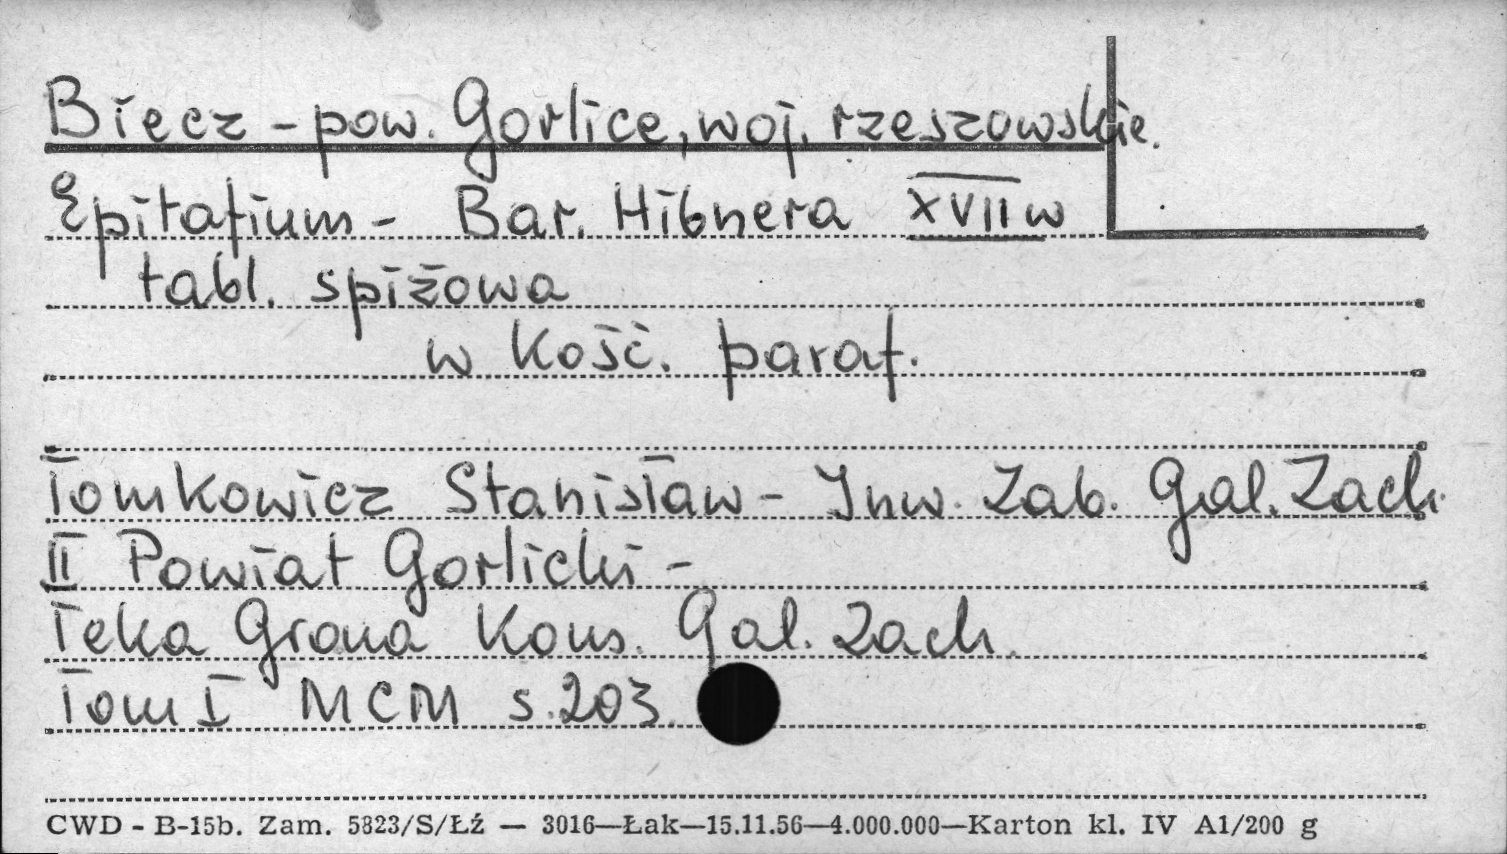 Biecz - pow. Gorlice, woj. rzeszowskie.
Epitafium - Bar. Hibnera XVII w
tabl. spiżowa
w kość. paraf.
Tomkowicz Stanisław - Inw. Zab. Gal. Zach.
II Powiat Gorlicki -
Teka Grona Kons. Gal. Zach.
Tom I MCM s. 203.
CWD - B-15b. Zam. 5823/S/Łź — 3016—Łak—15.11.56—4.000.000—Karton kl. IV A1/200 g